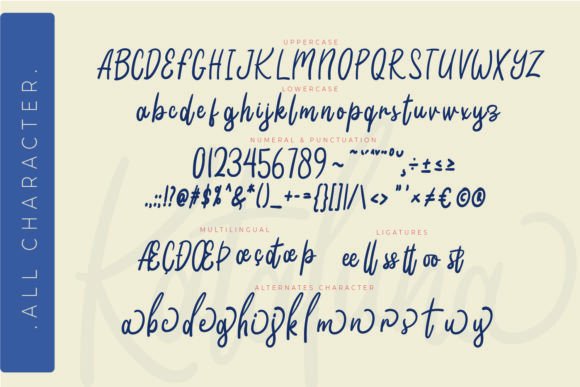 .ALL CHARACTER.
UPPERCASE
ABCDEFGHIJKLMNOPQRSTUVWXYZ
LOWERCASE
abcdefghijklmnopqrstuvwxyz
NUMERAL & PUNCTUATION
0123456789~
.,:;!?@#$%^&*()_+-={}[]|/\<>"'×≠€©®
÷±≤≥
MULTILINGUAL
ÆÇÐŒÞæçðœþ
LIGATURES
ee ll ss tt oo st
ALTERNATES CHARACTER
abedeghijklmnorstuwy